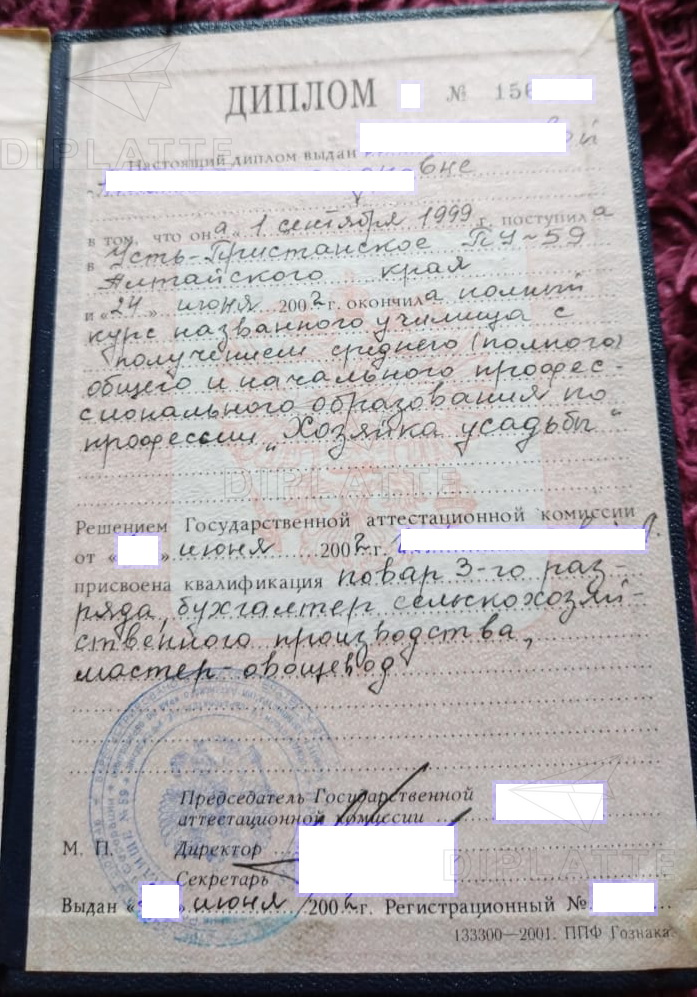 ДИПЛОМ № 156
Настоящий диплом выдан вой
овне
в том, что она „1 сентября 1999 г. поступила
в Усть-Пристанское ПУ-59
Алтайского края
и «24» июня 2002 г. окончила полный
курс названного училища с
получением среднего (полного)
общего и начального профес-
сионального образования по
профессии „Хозяйка усадьбы"
Решением Государственной аттестационной комиссии
от « » июня 2002 г.
присвоена квалификация повар 3-го раз-
ряда, бухгалтер сельскохозяй-
ственного производства,
мастер-овощевод
Председатель Государственной
аттестационной комиссии
М. П. Директор
Секретарь
Выдан « » июня 2002 г. Регистрационный №
133300—2001. ППФ Гознака.
DIPLATTE
DIPLATTE
DIPLATTE